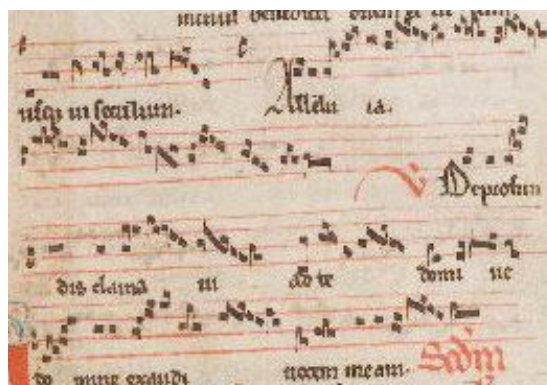 usq in seculum. Allelu ia.
V Deprofun
dis clama ui ad te domi ne
do mine exaudi uocem meam. Scdm